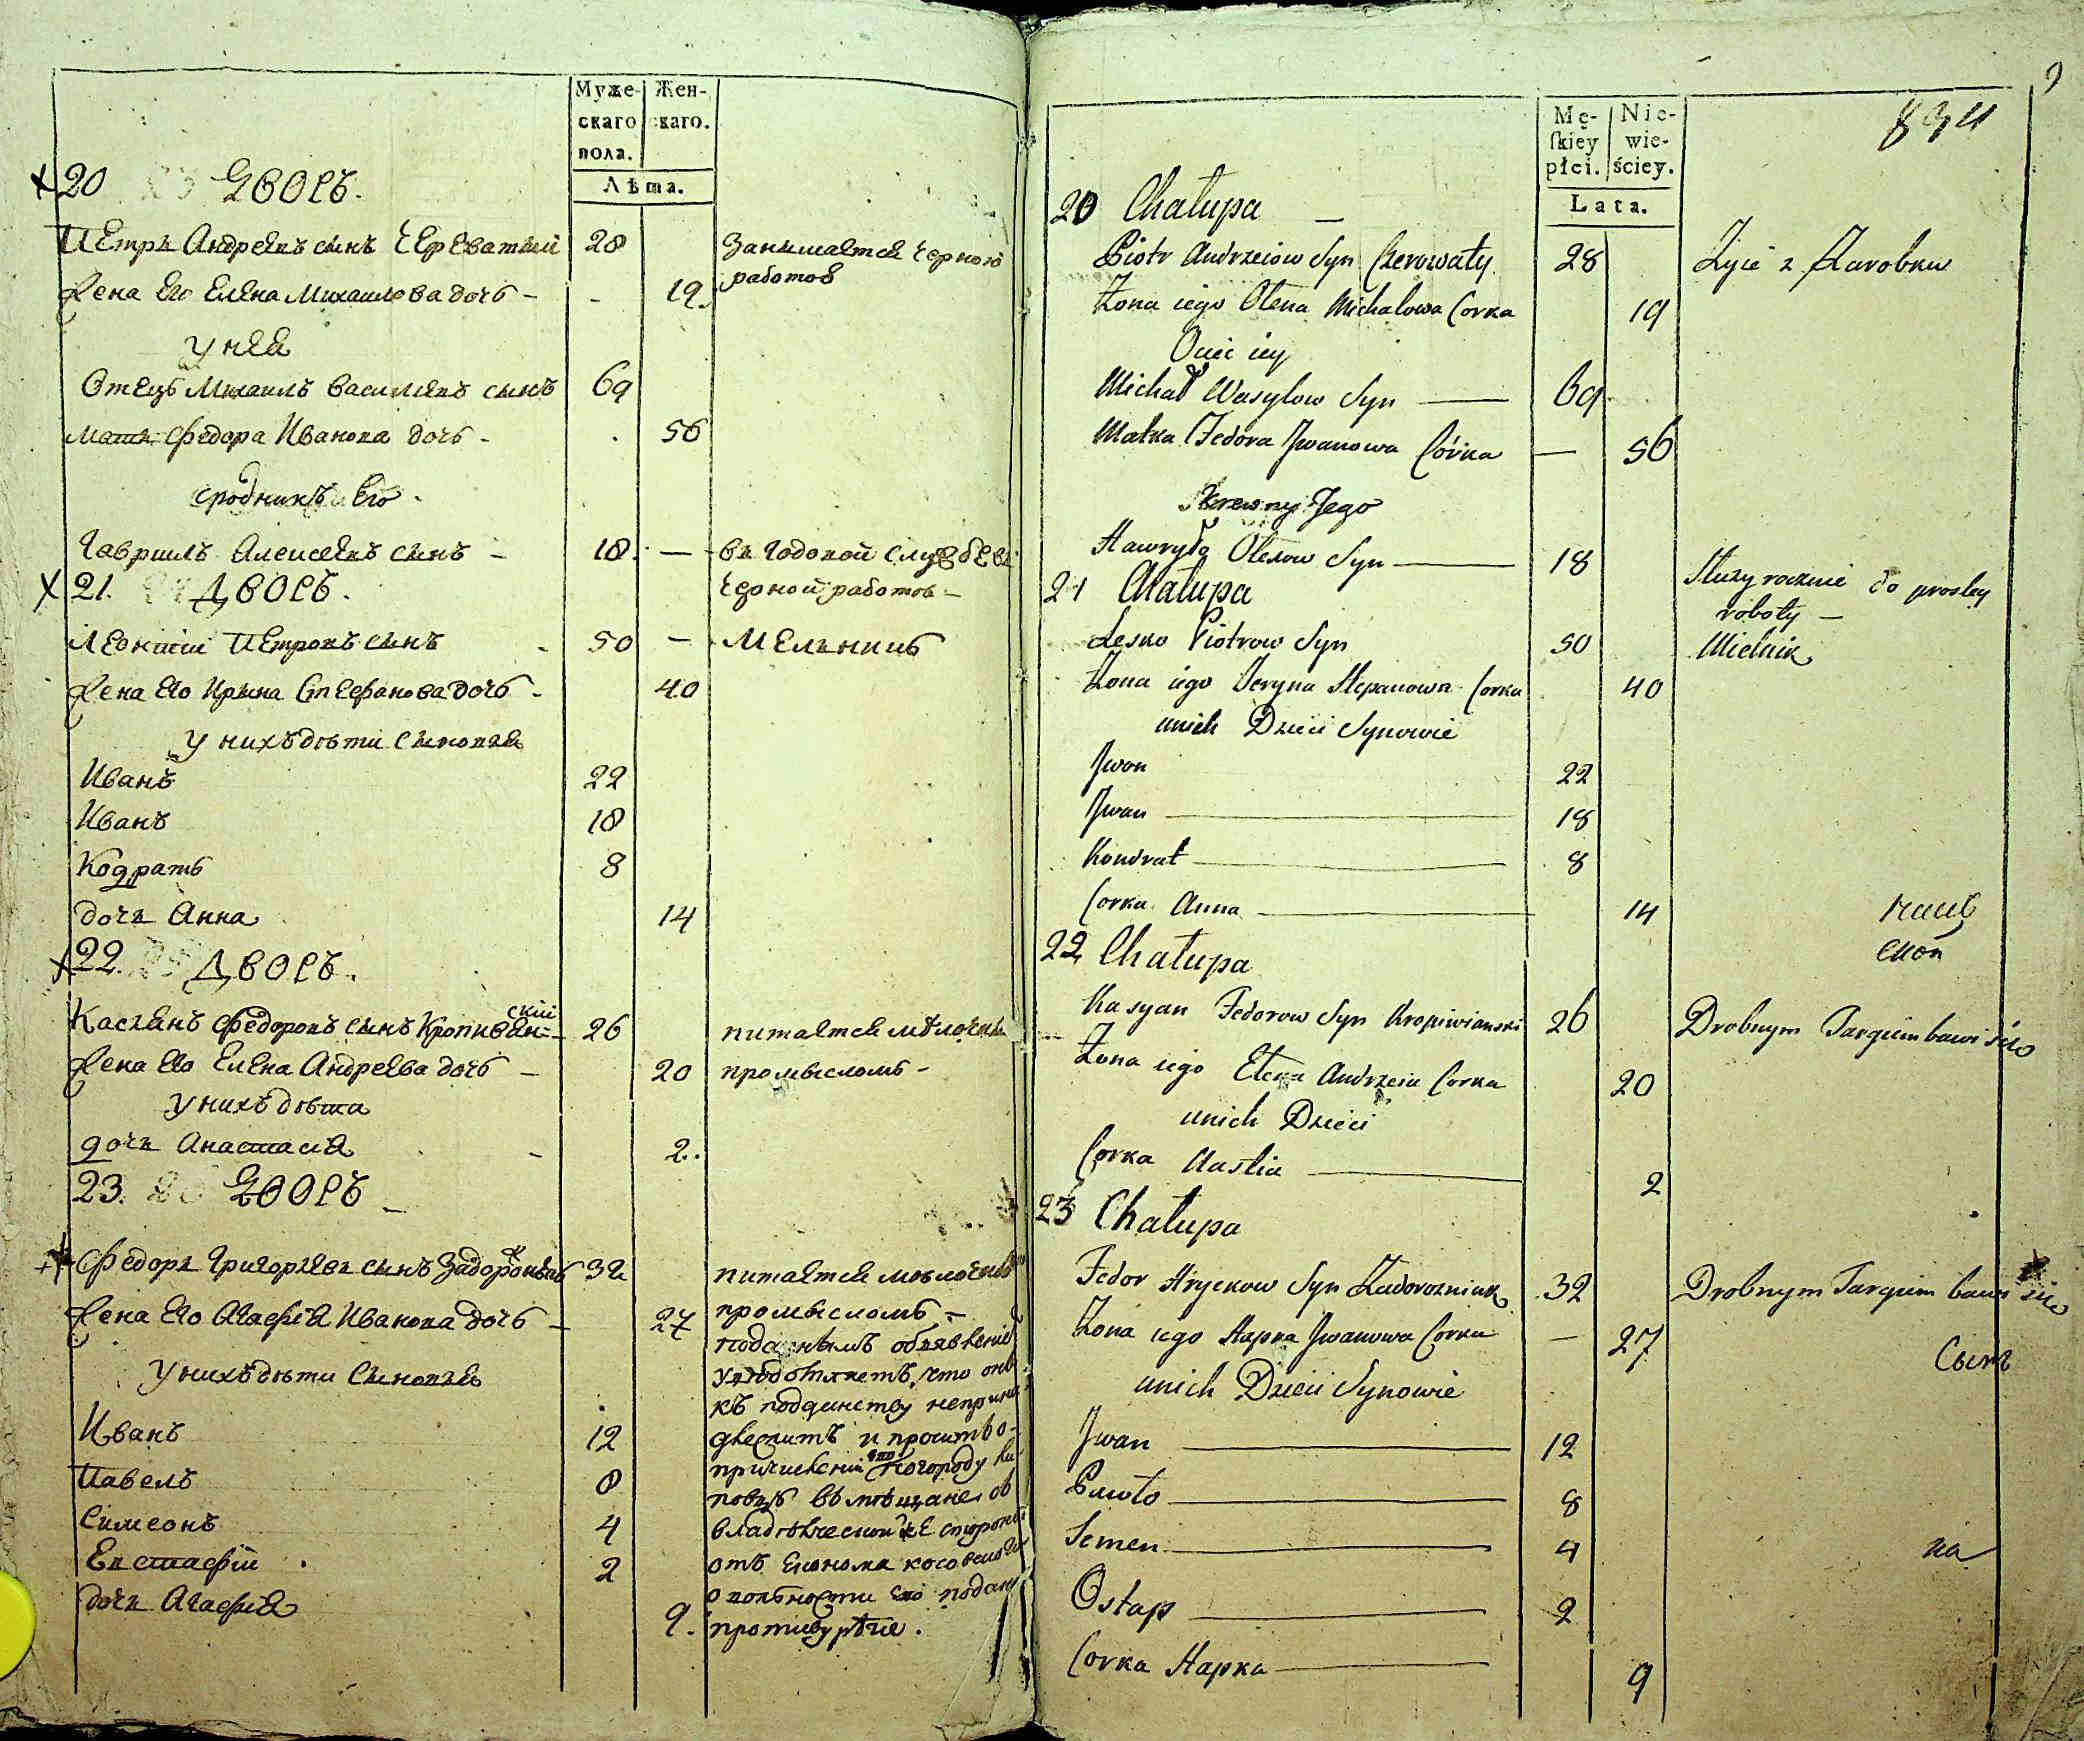 Муже-
скаго
пола.
Жен-
скаго.
Лѣта.
20 Дворъ.
Петръ Андреевъ сынъ Череватый 28 Занимается черною
работою
Жена его Елена Михаилова дочь - 19.
У нея
Отецъ Михаилъ Васильевъ сынъ 69
мать Федора Иванова дочь - 56
сродникъ Его
Гаврилъ Алексеевъ сынъ - 18. — въ годовой службе въ
черной работе -
21. Дворъ.
Леонтій Петровъ сынъ 50 — Мельникъ
Жена Его Ирына Стефанова дочь - 40
У нихъ дѣти сыновья
Иванъ 22
Иванъ 18
Кодратъ 8
дочь Анна 14
22. Дворъ.
Касіянъ Федоровъ сынъ Кропивян- 26 питается мѣлочнымъ
скій
Жена Его Елена Андреева дочь - 20 промысломъ -
У нихъ дѣти
дочь Анастасія - 2.
23. Дворъ -
Федоръ Григорьевъ сынъ Задорожнякъ 32 питается мѣлочнымъ
Жена Его Агафія Иванова дочь - 27 промысломъ -
поданнымъ объявленіемъ
У нихъ дѣти сыновья
что онъ
къ подданству непринад
Иванъ 12 лежитъ и проситъ о
причисленіи его по городу
Павелъ 8 въ мѣщане
Симеонъ 4
Евстафій 2 отъ Эконома
подано
дочь Агафія 9. противурѣчіе.
Mę-
skiey
płci.
Nie-
wie-
ściey.
Lata.
20 Chałupa —
Piotr Andrzeiow Syn Czerowaty 28 Żyie z Zarobku
Żona iego Olena Michałowa Corka 19
Ociec iey
Michał Wasylow Syn — 69
Matka Fedora Jwanowa Córka — 56
Krewny Jego
Hawryło Olexow Syn — 18 Służy rocznie do prostey
roboty —
21 Chałupa
Lesko Piotrow Syn 50 Mielnik
Żona iego Jeryna Stepanowa Corka 40
unich Dzieci Synowie
Jwan 22
Jwan — 18
Kondrat — 8
Corka Anna — 14
22 Chałupa
Kasyan Fedorow Syn Kropiwianski 26 Drobnym Targiem bawi sie
Żona iego Elena Andrzeia Corka 20
unich Dzieci
Corka Nastia — 2
23 Chałupa
Fedor Hryckow Syn Zadorozniuk 32 Drobnym Targiem bawi sie
Żona iego Hapka Jwanowa Corka — 27
Сынъ
unich Dzieci Synowie
Jwan — 12
Pawło — 8
Semen — 4
на
Ostap — 2
Corka Hapka — 9